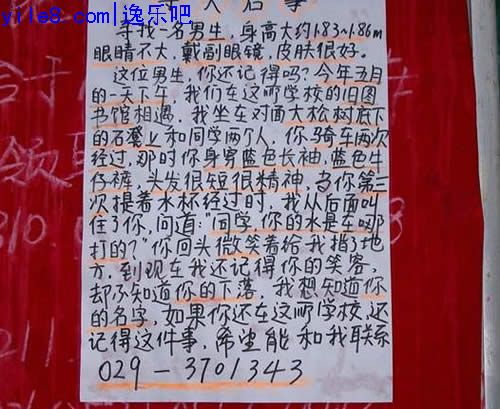 yile8.com/逸乐吧
人启事
寻找一名男生，身高大约1.83~1.86m
眼睛不大，戴副眼镜，皮肤很好。
这位男生，你还记得吗？今年五月
的一天下午，我们在这所学校的旧图
书馆相遇。我坐在对面大松树底下
的石凳上和同学两个人，你骑车两次
经过，那时你身穿蓝色长袖，蓝色牛
仔裤，头发很短很精神，当你第三
次提着水杯经过时，我从后面叫
住了你，问道："同学，你的水是在哪
打的？"你回头微笑着给我指了地
方。到现在我还记得你的笑容，
却不知道你的下落，我想知道你
的名字，如果你还在这所学校，还
记得这件事，希望能和我联系
029-3701343